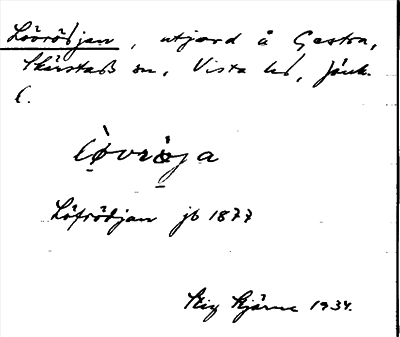 Lövrödjan, utjord å Gastra,
Skärstads sn, Vista hd, Jönk.
l.
lò̤vrö̀ja
Löfrödjan jb 1877
Stig Hjärne 1934.